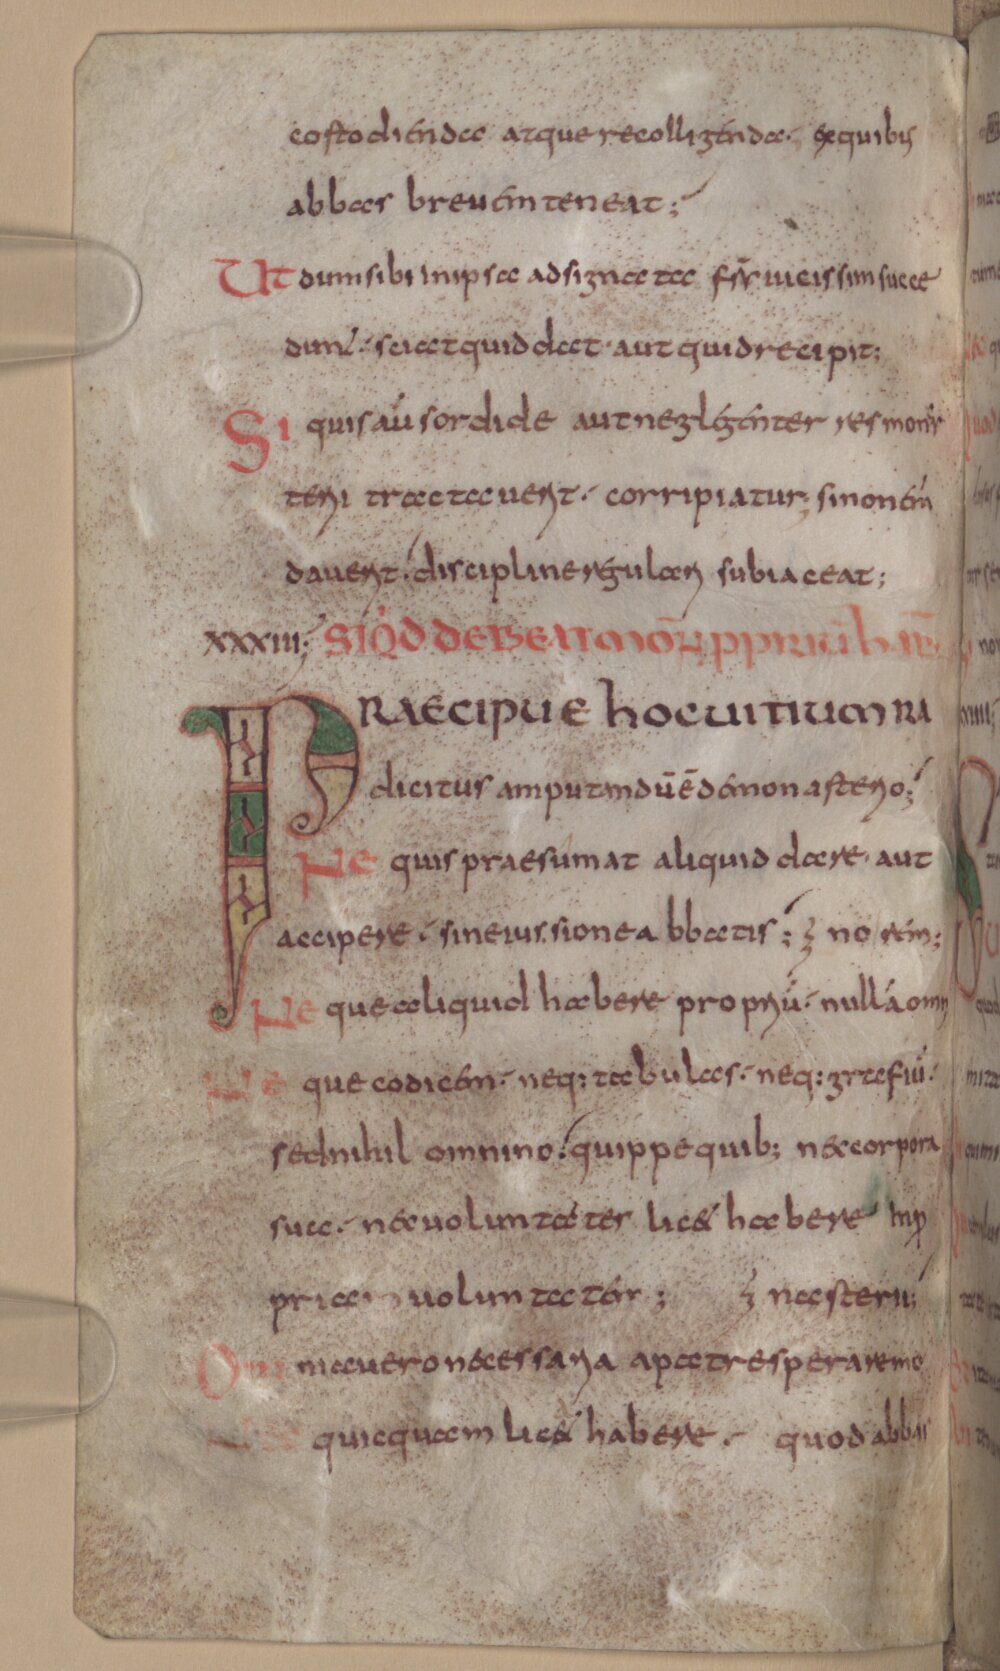 costodienda atque recolligenda· exquibus
abbas brevem teneat;
Ut dum sibi inipsa adsignata frr̄ uicissim succe
dunt· sciat quid dat· aut quid recipit;
Si quis aū sordide aut neglegenter res monas
terii tractauerit· corripiatur; si non emen
dauerit· discipline regulari subiaceat;
XXXIII; SI QD DEBEANT MON PPRIUM HAB
PRAECIPUE hoc uitium RA
dicitus amputandū ē de monasterio;
Ne quis praesumat aliquid dare· aut
accipere· sine iussione abbatis; & no rem;
Neque aliquid habere propriū· nullā omn
Neque codicem· neq: tabulas· neq: grafiū·
sed nihil omnino· quippe quib; nec corpora
sua· nec uoluntates licet habere in p
pria uoluntate;
Omnia uero necessaria a patre sperare mo
quicquam licet habere· quod abbas